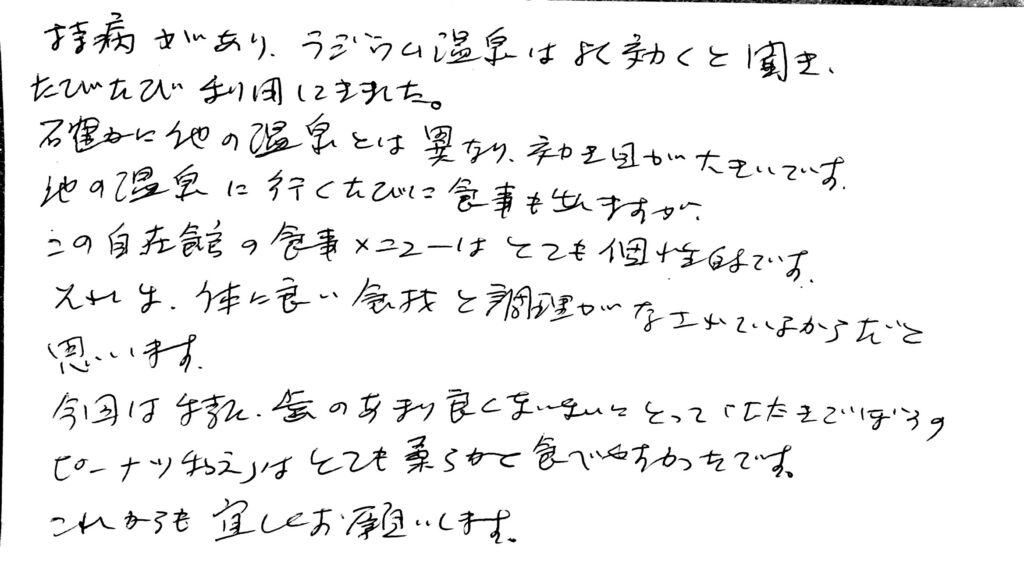 持病があり、ラジウム温泉はよく効くと聞き、
たびたび利用してきました。
確かに他の温泉とは異なり、効き目が大きいです。
他の温泉に行くたびに食事も出ますが、
この自在館の食事メニューはとても個性的です。
それは、体に良い食材と調理がなされているからだと
思います。
今回は特に、歯のあまり良くない にとって「たたきごぼうの
ピーナツ和え」はとても柔らかく食べやすかったです。
これからも宜しくお願いします。